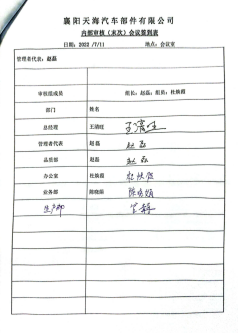 襄阳天海汽车部件有限公司
内部审核（末次）会议签到表
日期：2022 /7/11 地点：会议室
管理者代表：赵磊
审核组成员 组长：赵磊；组员：杜焕霞
部门 姓名
总经理 王清旺
管理者代表 赵磊 赵磊
品质部 赵磊 赵磊
办公室 杜焕霞
业务部 陈晓娟 陈晓娟
生产部